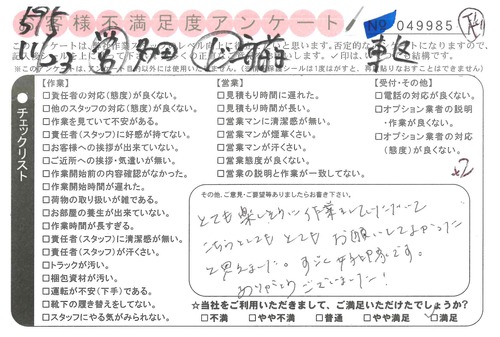 お客様不満足度アンケート
No 049985
チェックリスト
【作業】
□責任者の対応(態度)が良くない。
□他のスタッフの対応(態度)が良くない。
□作業を見ていて不安がある。
□責任者(スタッフ)に好感が持てない。
□お客様への挨拶が出来ていない。
□ご近所への挨拶・気遣いが無い。
□作業開始前の内容確認がなかった。
□作業開始時間が遅れた。
□荷物の取り扱いが雑である。
□お部屋の養生が出来ていない。
□作業時間が長すぎる。
□責任者(スタッフ)に清潔感が無い。
□責任者(スタッフ)が汗くさい。
□トラックが汚い。
□梱包資材が汚い。
□運転が不安(下手)である。
□靴下の履き替えをしてない。
□スタッフにやる気がみられない。
【営業】
□見積もり時間に遅れた。
□見積もり時間が長い。
□営業マンに清潔感が無い。
□営業マンが煙草くさい。
□営業マンが汗くさい。
□営業態度が良くない。
□営業の説明と作業が一致してない。
【受付・その他】
□電話の対応が良くない。
□オプション業者の説明
・作業が良くない。
□オプション業者の対応
(態度)が良くない。
その他、ご意見・ご要望等ありましたらお書き下さい。
とても楽しそうに作業をしていただいて
こちらとしても とても お願いしてよかった
と思えました。すごく
ありがとうございました!
☆当社をご利用いただきまして、ご満足いただけたでしょうか?
□不満 □やや不満 □普通 □やや満足 □満足